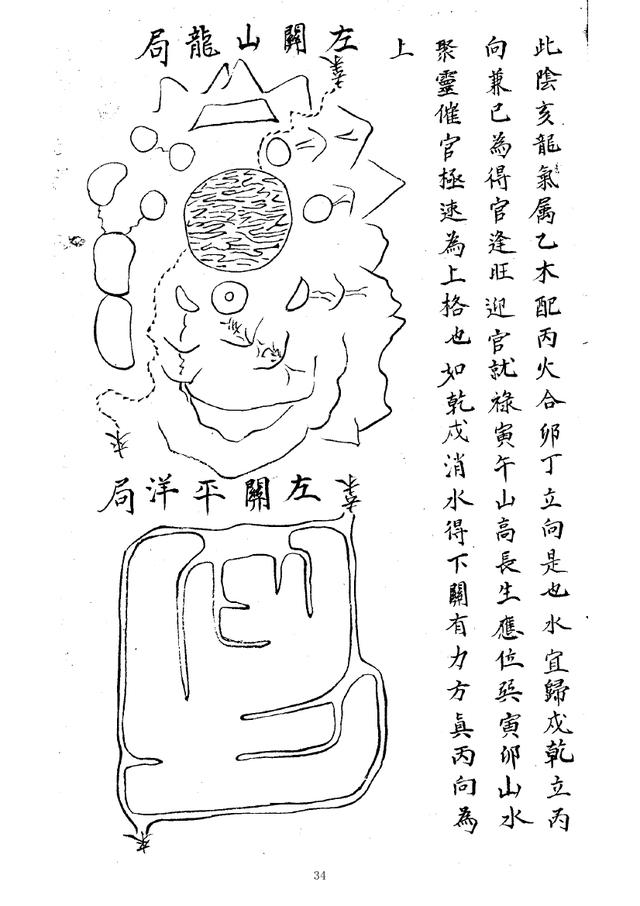 此陰亥龍氣属乙木配丙火合卯丁立向是也水宜歸戌乾立丙
向兼已為得官逢旺迎官就祿寅午山高長生應位巽寅卯山水
聚靈催官極速為上格也如乾戌消水得下關有力方真丙向為
上
左關山龍局
來
來
左關平洋局
來
來
34